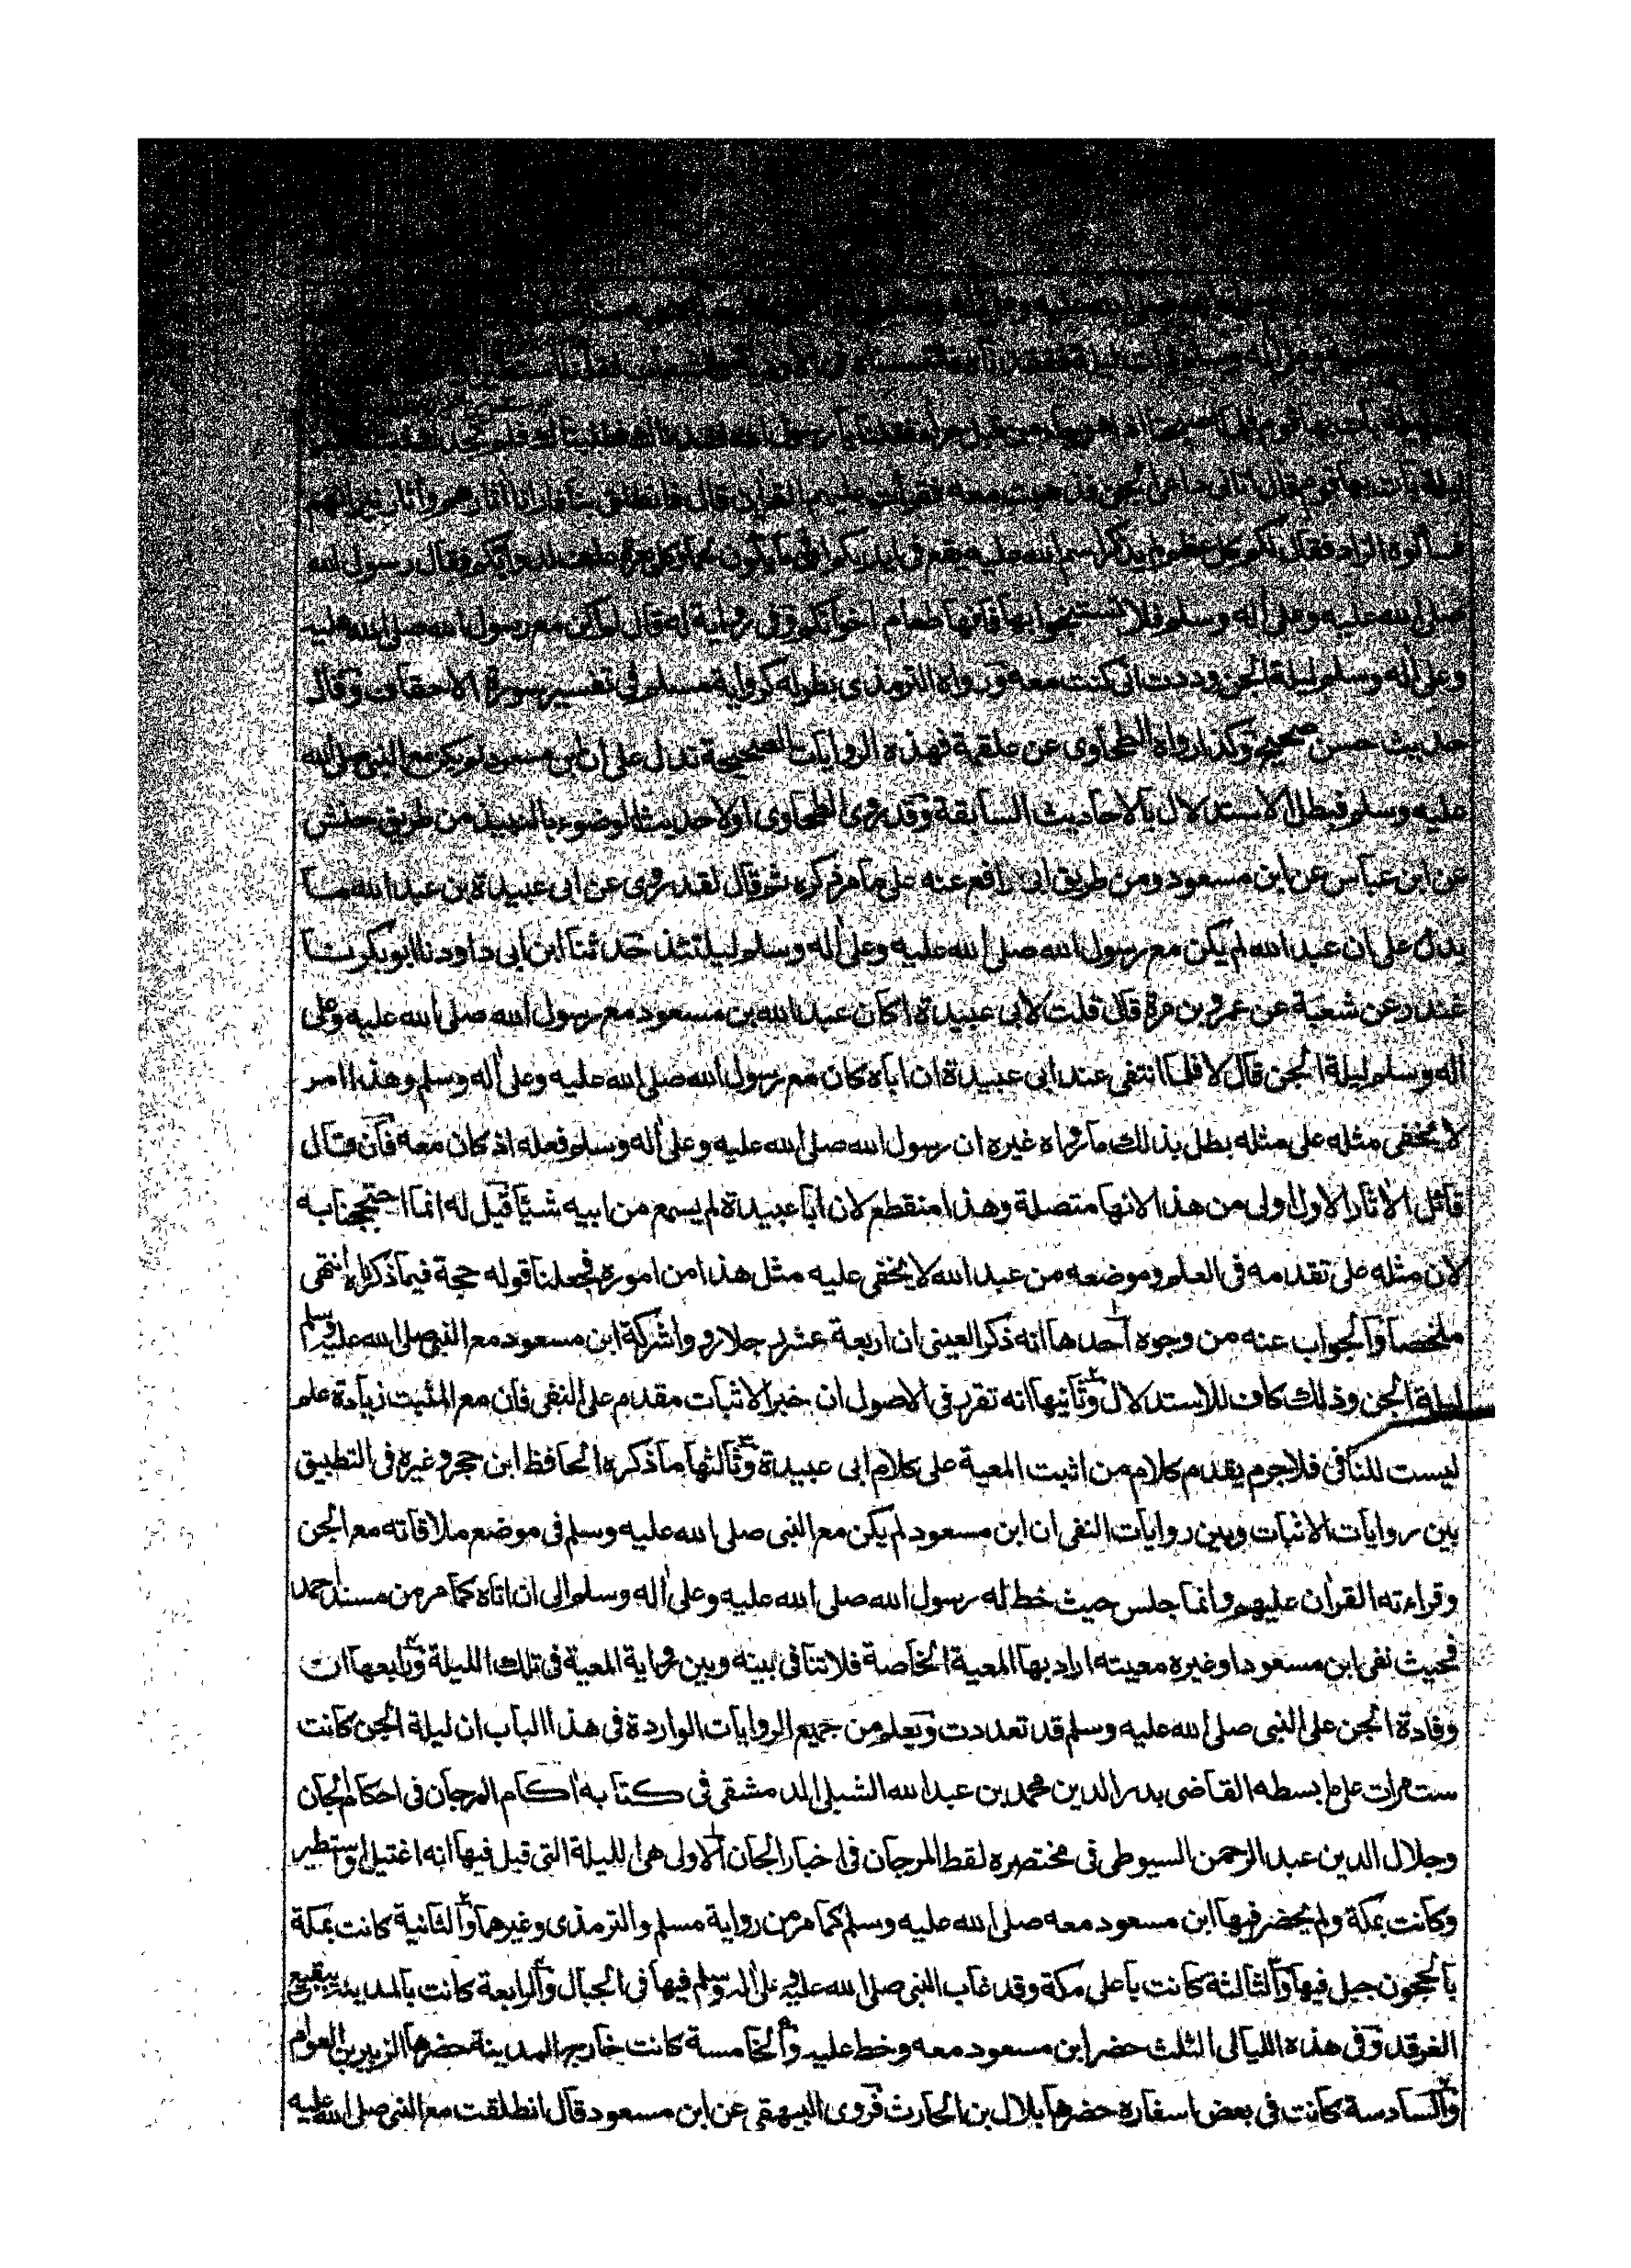 ليلة بات بها قوم قال اتانى داعى الجن فذهبت معه فقرأت عليهم القرآن قال فانطلق بنا فارانا آثارهم وآثار نيرانهم
فسألوه الزاد فقال لكم كل عظم لم يذكر اسم الله عليه يقع فى ايديكم اوفر ما يكون لحما وكل بعرة علف لدوابكم فقال رسول الله
صلى الله عليه وعلى آله وسلم فلا تستنجوا بها فانها طعام اخوانكم وفى رواية له قال لم اكن مع رسول الله صلى الله عليه
وعلى آله وسلم ليلة الجن وددت انى كنت معه ورواه الترمذى بطوله كرواية مسلم فى تفسير سورة الاحقاف وقال
حديث حسن صحيح وكذا رواه الطحاوى عن علقمة فهذه الروايات الصحيحة تدل على ان ابن مسعود لم يكن مع النبى صلى الله
عليه وسلم فبطل الاستدلال بالاحاديث السابقة وقد روى الطحاوى اولا حديث الوضوء بالنبيذ من طريق حنش
عن ابن عباس عن ابن مسعود ومن طريق ابى رافع عنه على ما مر ذكره ثم قال لقد روى عن ابى عبيدة بن عبد الله ما
يدل على ان عبد الله لم يكن مع رسول الله صلى الله عليه وعلى آله وسلم ليلتئذ حدثنا ابن ابى داود نا ابو بكر نا
غندر عن شعبة عن عمرو بن مرة قال قلت لابى عبيدة اكان عبد الله بن مسعود مع رسول الله صلى الله عليه وعلى
آله وسلم ليلة الجن قال لا فلما انتفى عند ابى عبيدة ان اباه كان مع رسول الله صلى الله عليه وعلى آله وسلم وهذا امر
لا يخفى مثله على مثله بطل بذلك ما رواه غيره ان رسول الله صلى الله عليه وعلى آله وسلم فعله اذ كان معه فان قال
قائل الآثار الاول اولى من هذا لانها متصلة وهذا منقطع لان ابا عبيدة لم يسمع من ابيه شيئا قيل له انما احتججنا به
لان مثله على تقدمه فى العلم وموضعه من عبد الله لا يخفى عليه مثل هذا من اموره فجعلنا قوله حجة فيما ذكرناه انتهى
ملخصا والجواب عنه من وجوه احدها انه ذكر العينى ان اربعة عشر رجلا رووا شركة ابن مسعود مع النبى صلى الله عليه وسلم
ليلة الجن وذلك كاف للاستدلال وثانيها انه تقرر فى الاصول ان خبر الاثبات مقدم على النفى فان مع المثبت زيادة علم
ليست للنافى فلا جرم يقدم كلام من اثبت المعية على كلام ابى عبيدة وثالثها ما ذكره الحافظ ابن حجر وغيره فى التطبيق
بين روايات الاثبات وبين روايات النفى ان ابن مسعود لم يكن مع النبى صلى الله عليه وسلم فى موضع ملاقاته مع الجن
وقراءته القرآن عليهم وانما جلس حيث خط له رسول الله صلى الله عليه وعلى آله وسلم الى ان اتاه كما مر من مسند احمد
فحيث نفى ابن مسعود او غيره معيته اراد بها المعية الخاصة فلا تنافى بينه وبين رواية المعية فى تلك الليلة ورابعها ان
وفادة الجن على النبى صلى الله عليه وسلم قد تعددت ويعلم من جميع الروايات الواردة فى هذا الباب ان ليلة الجن كانت
ست مرات على ما بسطه القاضى بدر الدين محمد بن عبد الله الشبلى الدمشقى فى كتابه آكام المرجان فى احكام الجان
وجلال الدين عبد الرحمن السيوطى فى مختصره لقط المرجان فى اخبار الجان الاولى هى الليلة التى قيل فيها انه اغتيل او استطير
وكانت بمكة ولم يحضر فيها ابن مسعود معه صلى الله عليه وسلم كما مر من رواية مسلم والترمذى وغيرهما والثانية كانت بمكة
بالحجون جبل فيها والثالثة كانت باعلى مكة وقد غاب النبى صلى الله عليه وعلى آله وسلم فيها فى الجبال والرابعة كانت بالمدينة ببقيع
الغرقد وفى هذه الليالى الثلث حضر ابن مسعود معه وخط عليه والخامسة كانت خارج المدينة حضرها الزبير بن العوام
والسادسة كانت فى بعض اسفاره حضرها بلال بن الحارث فروى البيهقى عن ابن مسعود قال انطلقت مع النبى صلى الله عليه